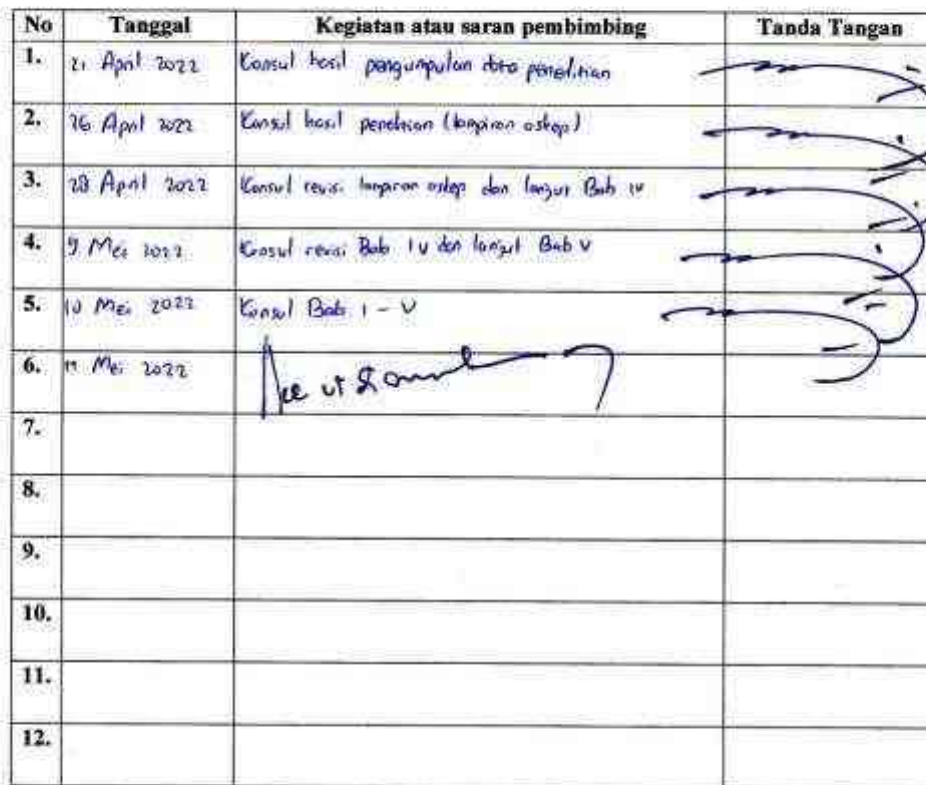 No Tanggal Kegiatan atau saran pembimbing Tanda Tangan
1. 21 April 2022 Konsul hasil pengumpulan data penelitian
2. 26 April 2022 Konsul hasil penelitian (lampiran askep)
3. 28 April 2022 Konsul revisi lampiran askep dan lanjut Bab IV
4. 9 Mei 2022 Konsul revisi Bab IV dan lanjut Bab V
5. 10 Mei 2022 Konsul Bab I - V
6. 11 Mei 2022 Acc
7.
8.
9.
10.
11.
12.